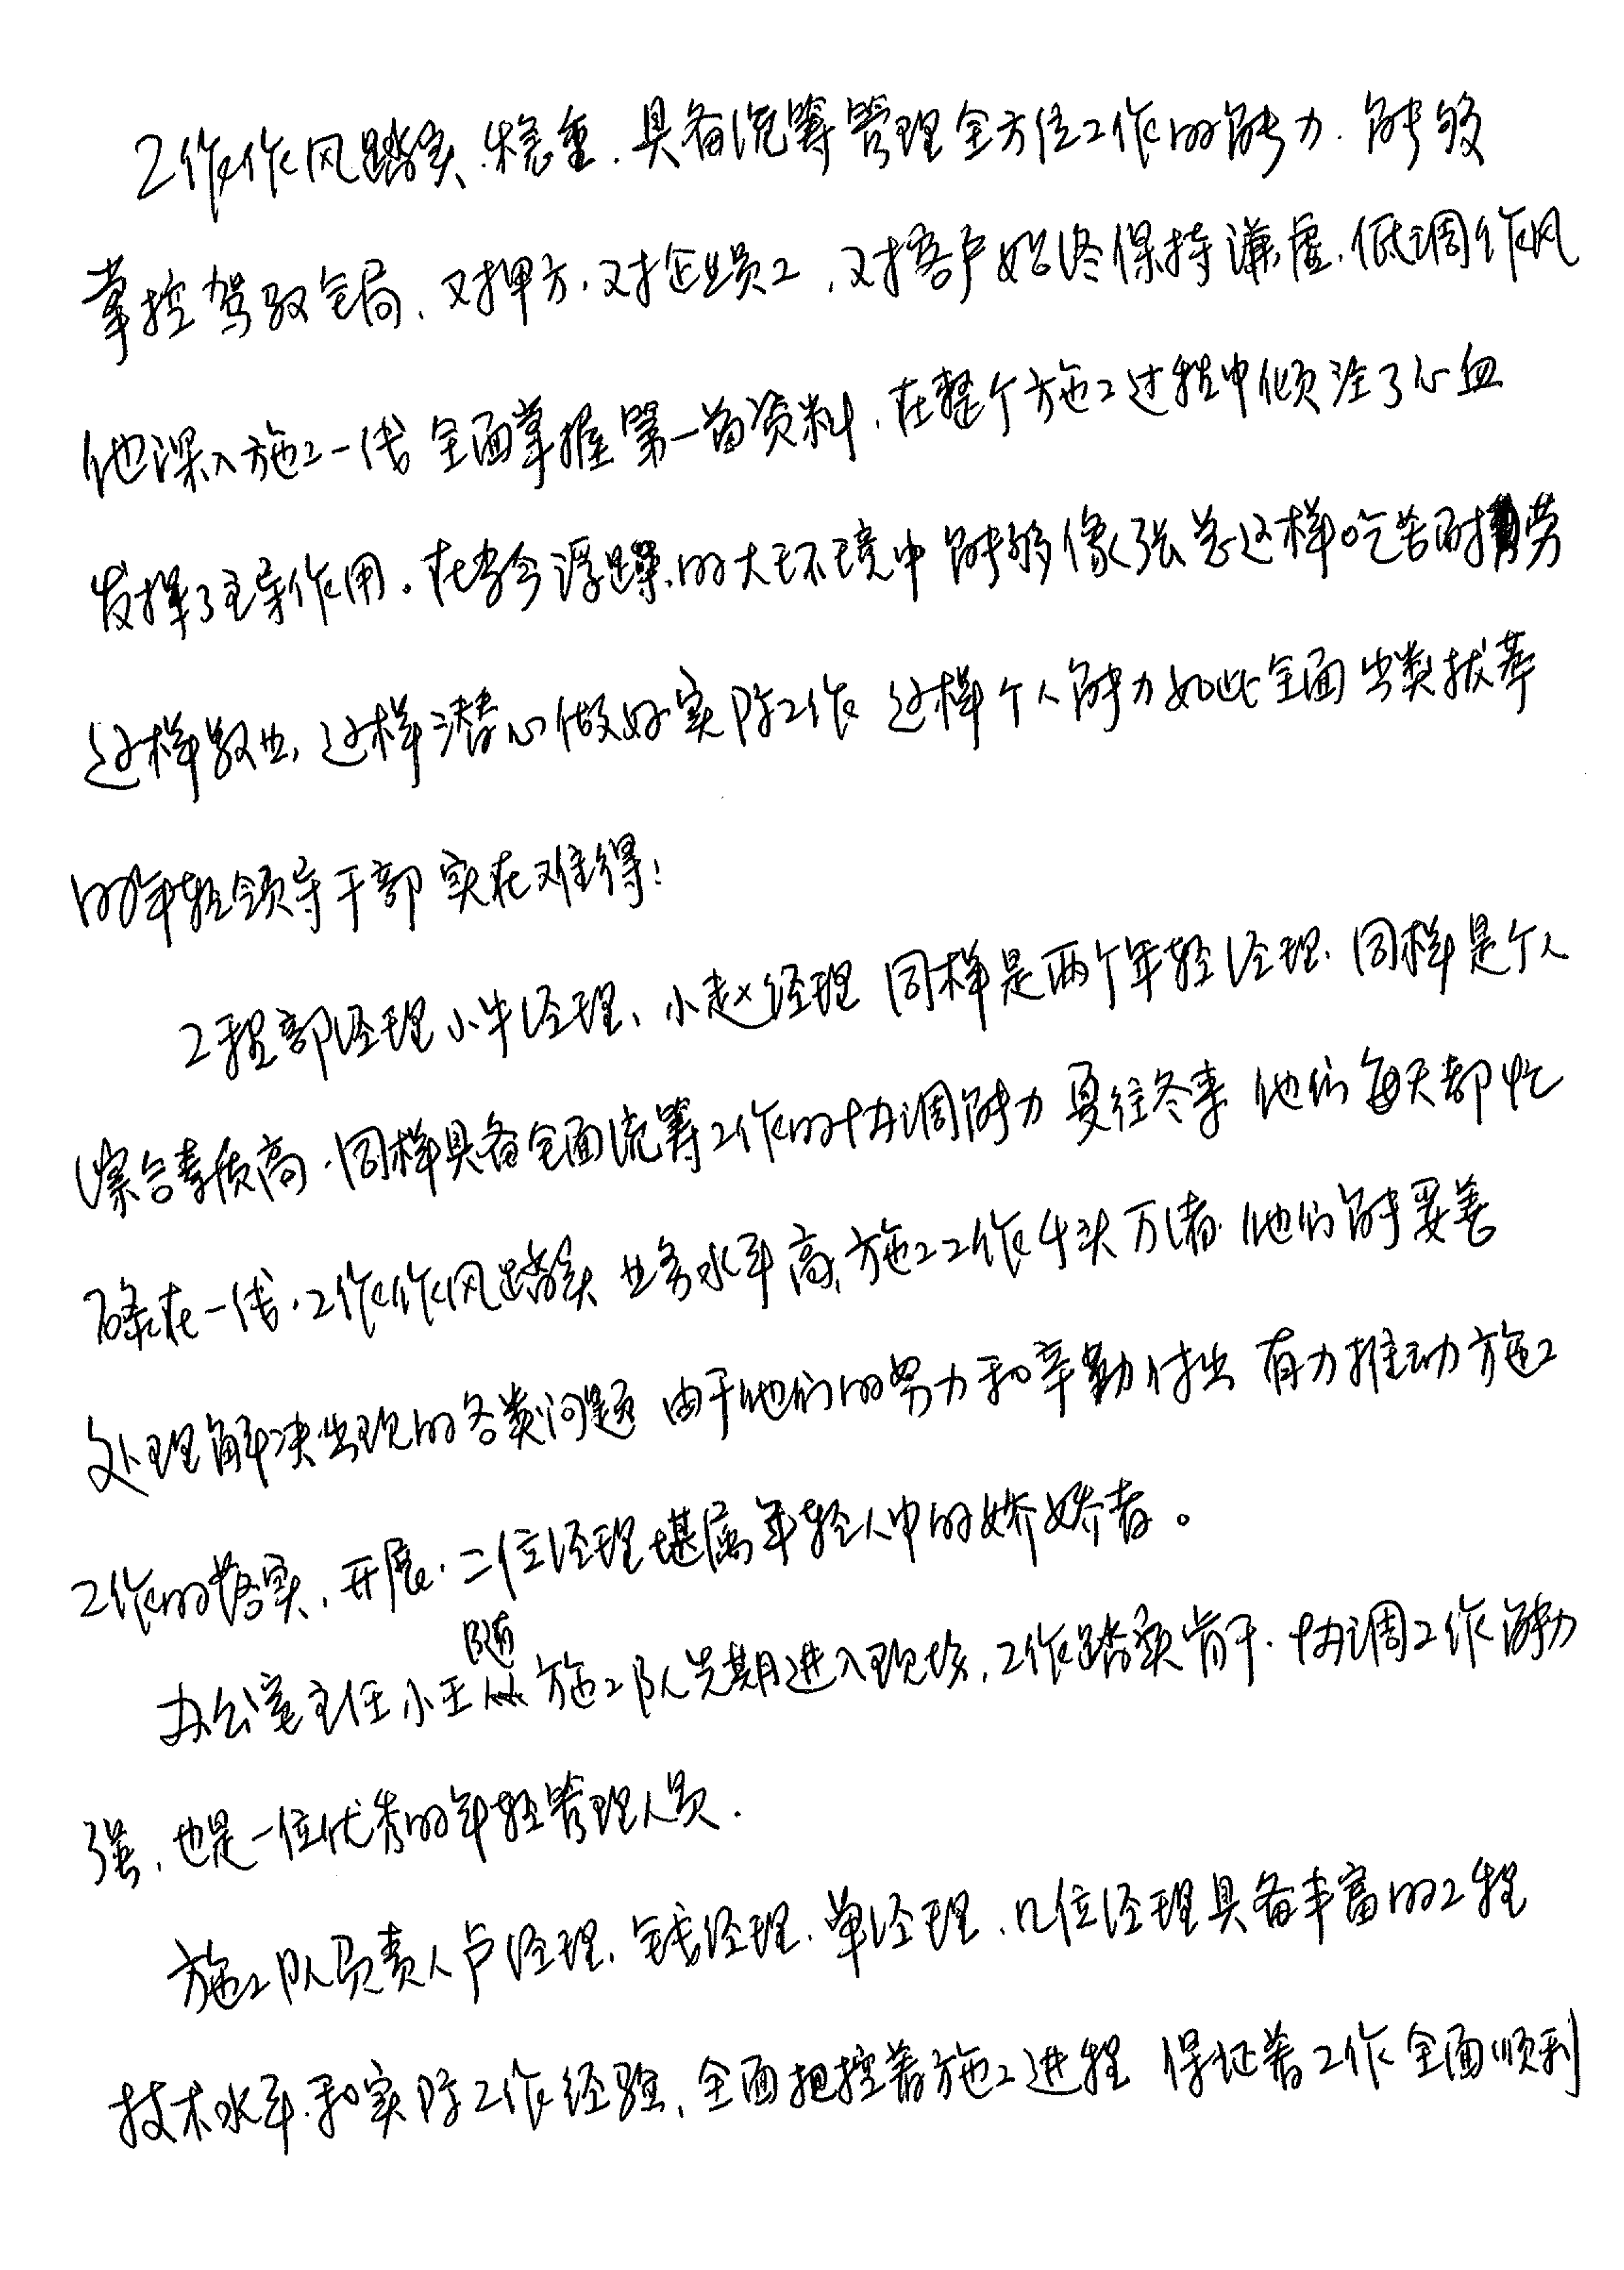 工作作风踏实、稳重,具备统筹管理全方位工作的能力,能够
掌控驾驭全局、对甲方,对企业员工,对客户始终保持谦虚,低调作风
他深入施工一线 全面掌握第一首资料,在整个施工过程中倾注了心血
发挥了主导作用。在当今浮躁的大环境中 能够像张总这样吃苦耐劳
这样敬业,这样潜心做好实际工作 这样个人能力如此全面出类拔萃
的年轻领导干部 实在难得!
工程部经理小牛经理、小赵经理 同样是两个年轻经理,同样是个人
综合素质高,同样具备全面统筹工作的协调能力 夏往冬来 他们每天都忙
碌在一线,工作作风踏实 业务水平高,施工工作千头万绪 他们能妥善
处理解决出现的各类问题 由于他们的努力和辛勤付出 有力推动施工
工作的落实,开展,二位经理堪属年轻人中的娇娇者。
办公室主任小王随施工队先期进入现场,工作踏实肯干,协调工作能力
强,也是一位优秀的年轻管理人员.
施工队负责人卢经理,钱经理,单经理,几位经理具备丰富的工程
技术水平和实际工作经验,全面把控着施工进程 保证着工作全面顺利